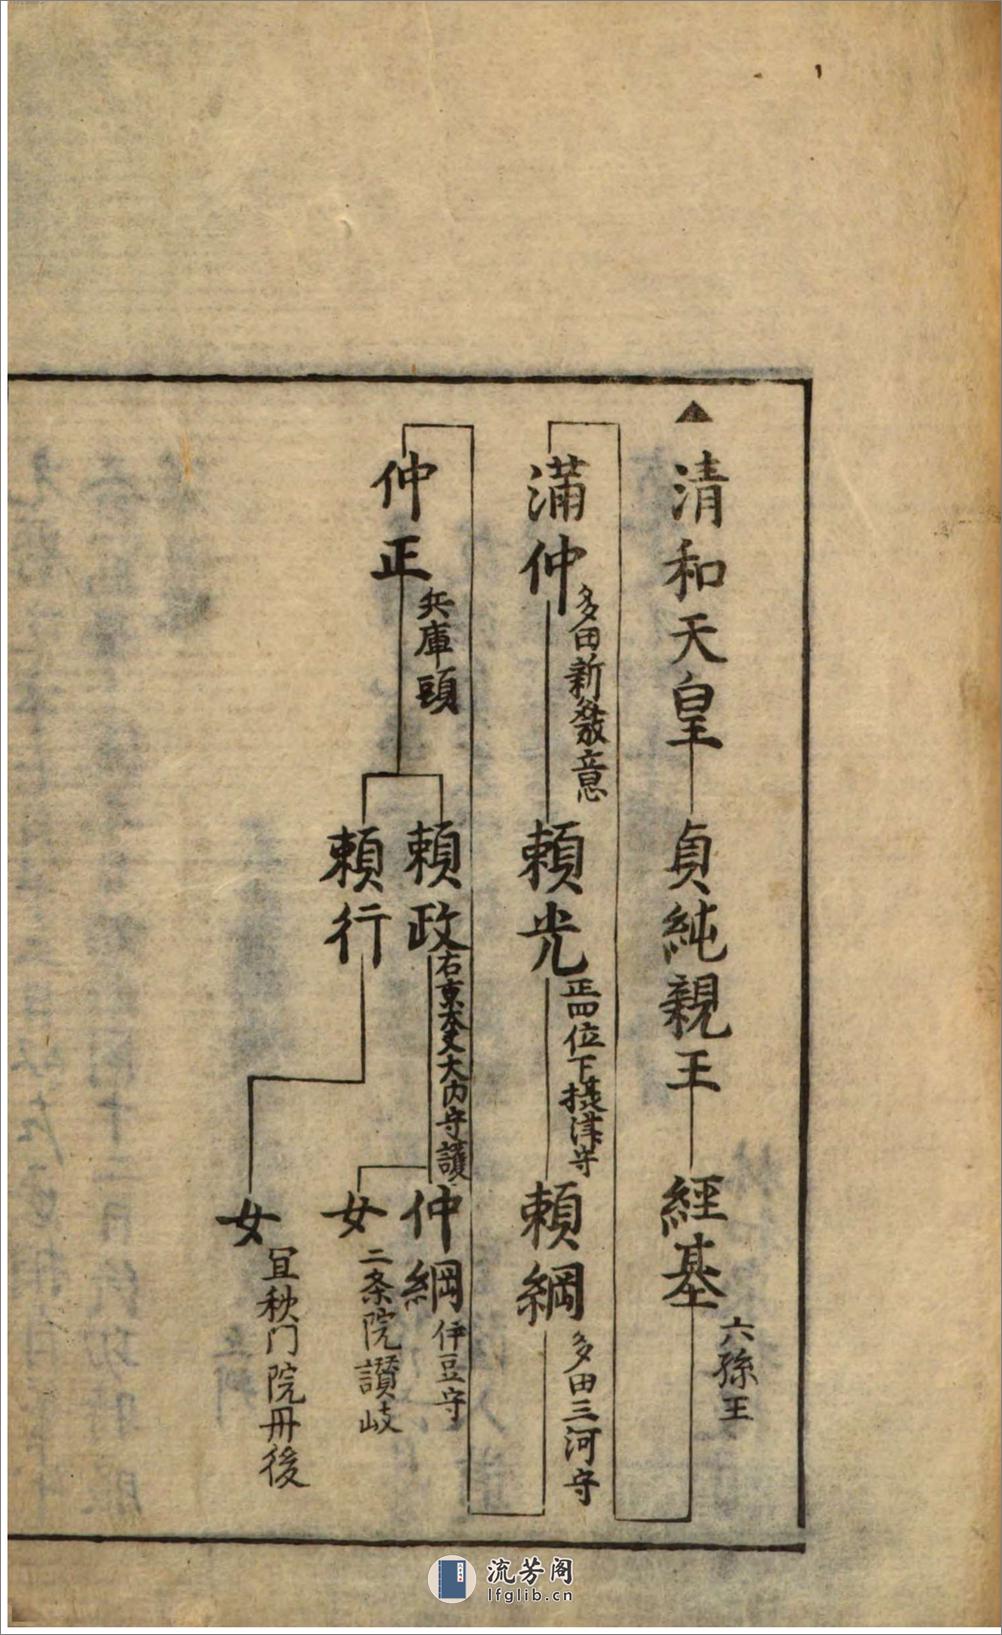 ▲清和天皇 貞純親王 經基 六孫王
滿仲 多田新發意 頼光 正四位下摂津守 頼綱 多田三河守
仲正 兵庫頭 頼政 右京大夫大内守護 仲綱 伊豆守
女 二条院讃岐
頼行 女 宜秋门院丹後
流芳阁
lfglib.cn